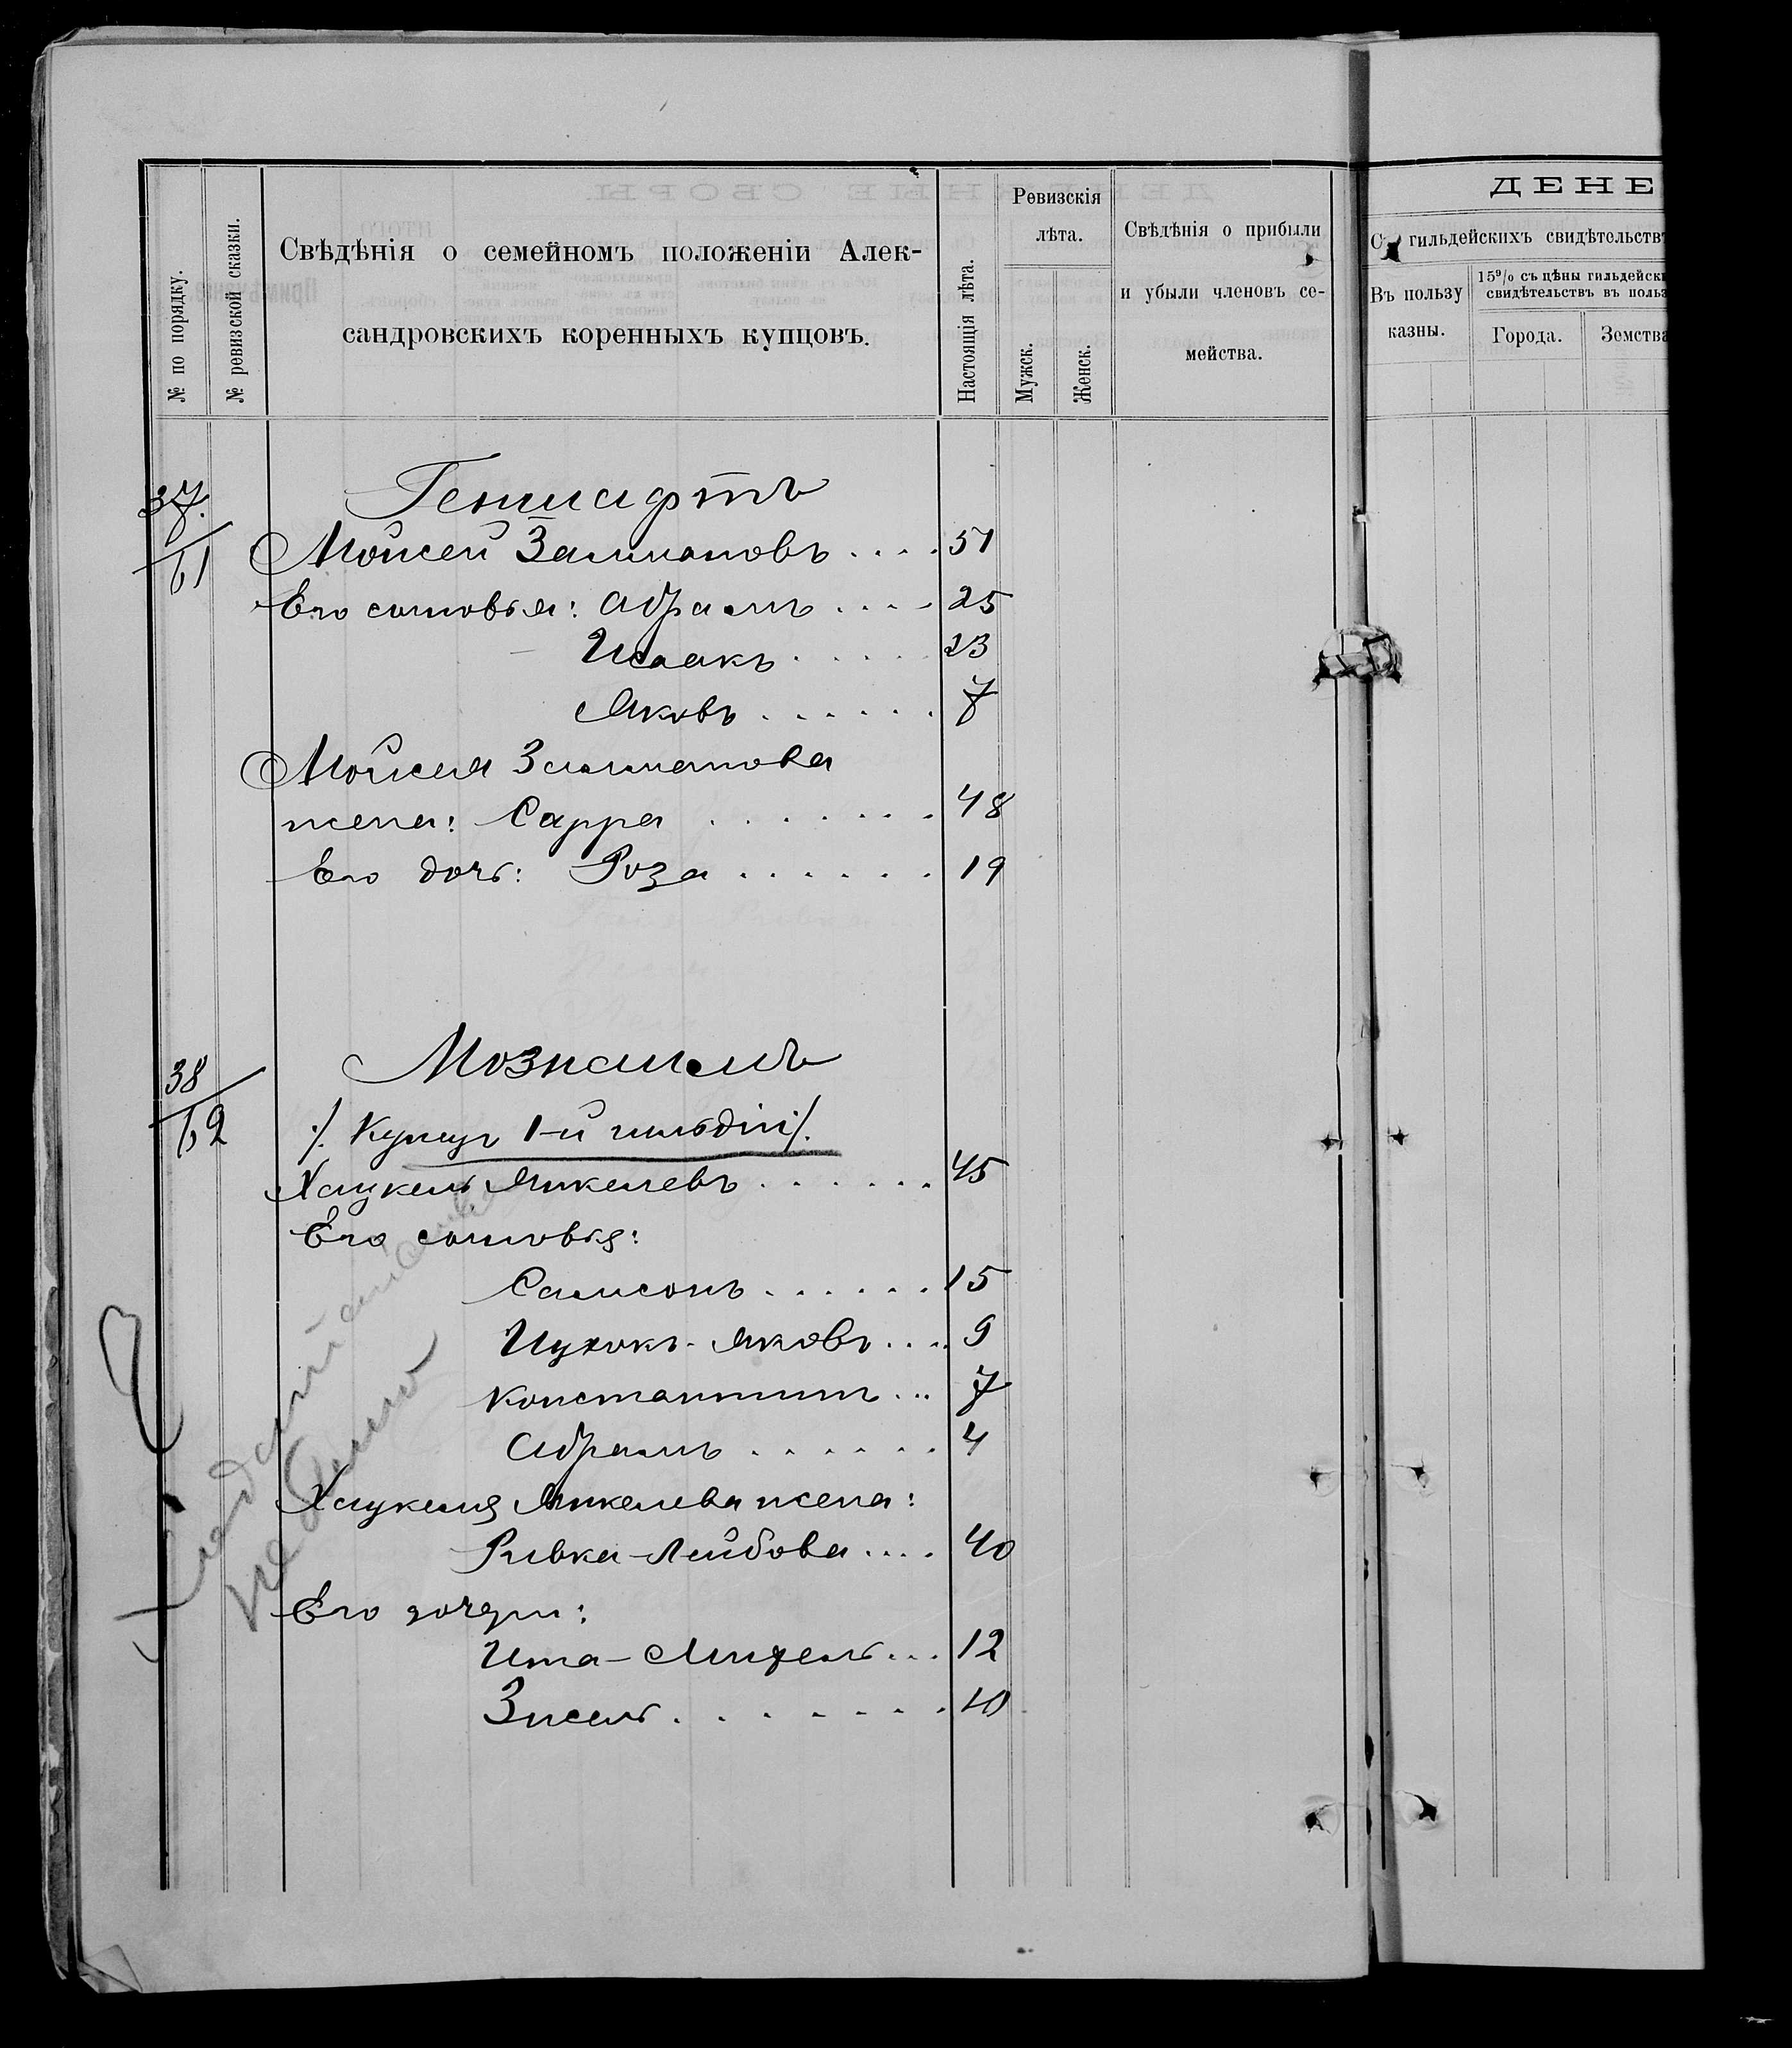 № по порядку.
№ ревизской сказки.
Свѣдѣнія о семейномъ положеніи Алек-
сандровскихъ коренныхъ купцовъ.
Настоящія лѣта.
Ревизскія
лѣта.
Мужск.
Женск.
Свѣдѣнія о прибыли
и убыли членовъ се-
мейства.
ДЕНЕ
гильдейскихъ свидѣтельствъ
Въ пользу
казны.
15% съ цѣны гильдейск
свидѣтельствъ въ польз
Города.
Земства
37.
61
Геншафтъ
Мойсей Залмановъ .... 51
Его сыновья: Абрамъ .... 25
Исаакъ ..... 23
Яковъ ...... 7
Мойсея Залманова
жена: Сарра ....... 48
Его дочь: Роза ...... 19
38
62
Мознаимъ
/. Купецъ 1-й гильдіи /.
Хацкель Янкелевъ ...... 45
Его сыновья:
Самсонъ ...... 15
Ицхокъ-Яковъ .... 9
Константинъ ... 7
Абрамъ ...... 4
Хацкеля Янкелева жена:
Ривка-Лейбова .... 40
Его дочери:
Ита-Михель ... 12
Зисель ....... 10